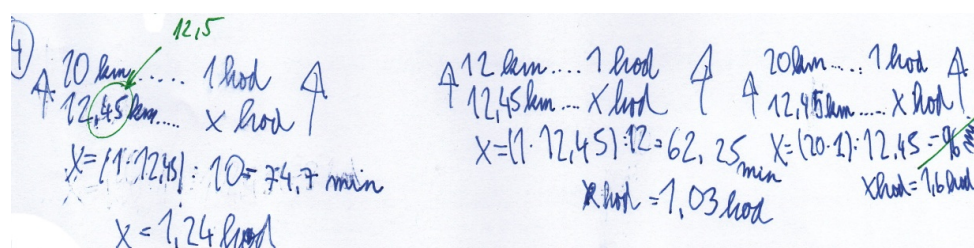 12,5
4
20 km..... 1 hod
12,45 km..... x hod
X=(1·12,45) : 10=74,7 min
X=1,24 hod
12 km.... 1 hod
12,45km... X hod
X=(1·12,45):12=62,25 min
X hod =1,03 hod
20km.... 1 hod
12,45km..... X hod
X=(20·1):12,45=96
X hod=1,6 hod